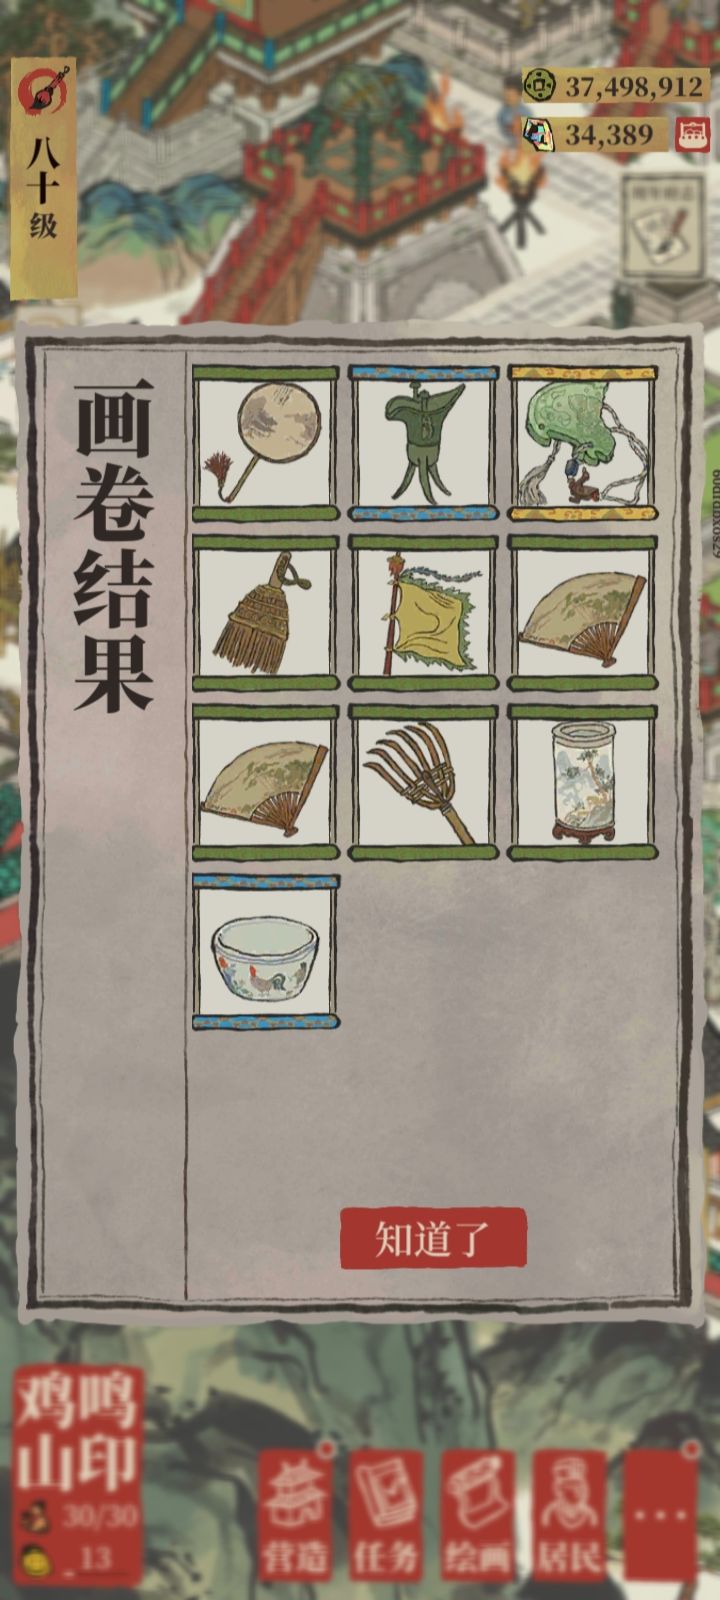 八十级
37,498,912
34,389
画卷结果
知道了
鸡鸣
山印
30/30
13
营造
任务
绘画
居民
...